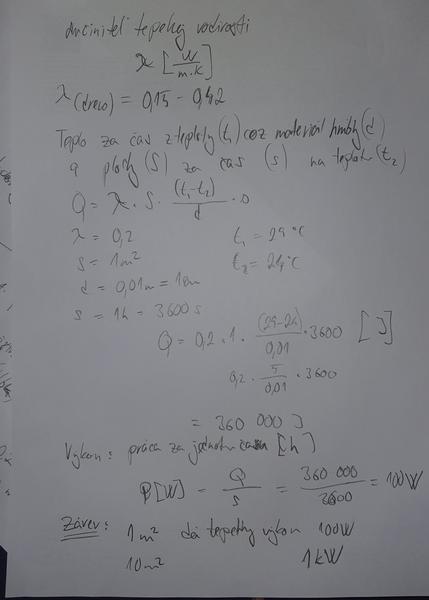 súčiniteľ tepelnej vodivosti
λ [W/m.K]
λ(drevo) = 0,15 - 0,42
Teplo za čas z teploty (t₁) cez materiál hrúbky (d)
a plochy (S) za čas (s) na teplotu (t₂)
Q = λ · S · (t₁-t₂)/d · s
λ = 0,2 t₁ = 29 °C
S = 1m² t₂ = 24 °C
d = 0,01m = 1cm
s = 1h = 3600 s
Q = 0,2 · 1 · (29-24)/0,01 · 3600 [J]
0,2 · 5/0,01 · 3600
= 360 000 J
Výkon: práca za jednotku času [h]
P[W] = Q/s = 360 000/3600 = 100W
Záver: 1m² dá tepelný výkon 100W
10m² 1kW